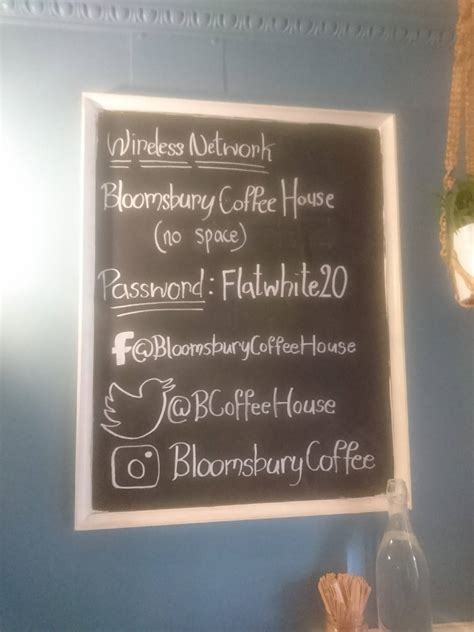 Wireless Network
Bloomsbury Coffee House
(no space)
Password: Flatwhite20
f@BloomsburyCoffeeHouse
@BCoffeeHouse
BloomsburyCoffee